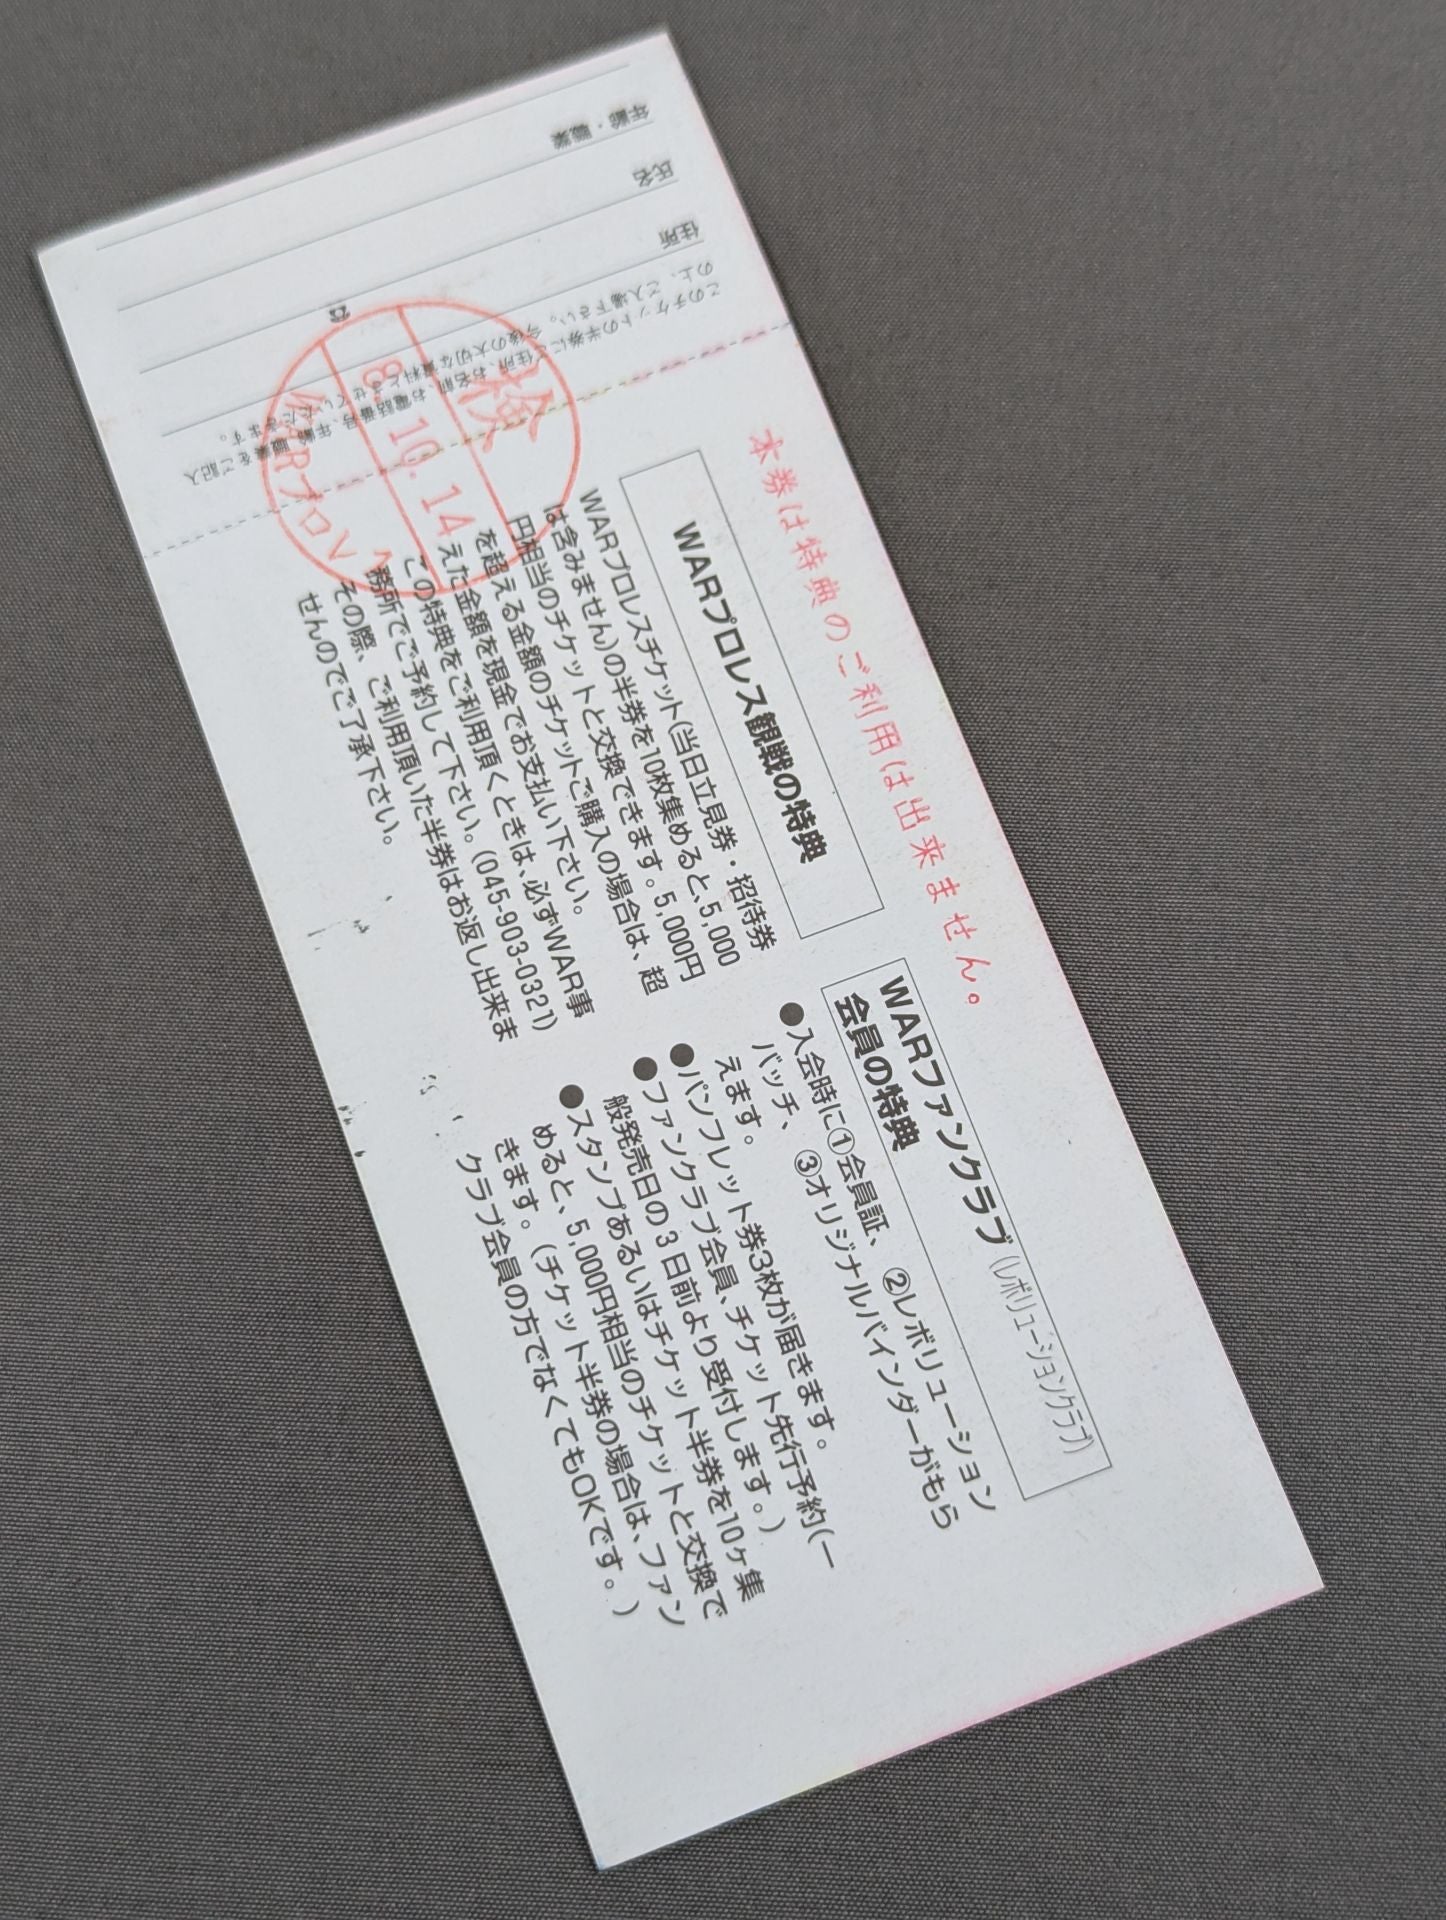 本券は特典のご利用は出来ません。
WARプロレス観戦の特典
WARプロレスチケット(当日立見券・招待券
は含みません)の半券を10枚集めると、5,000
円相当のチケットと交換できます。5,000円
を超える金額のチケットご購入の場合は、超
えた金額を現金でお支払い下さい。
この特典をご利用頂くときは、必ずWAR事
務所でご予約して下さい。(045-903-0321)
その際、ご利用頂いた半券はお返し出来ま
せんのでご了承下さい。
WARファンクラブ(レボリューションクラブ)
会員の特典
●入会時に①会員証、②レボリューション
バッチ、③オリジナルバインダーがもら
えます。
●パンフレット券3枚が届きます。
●ファンクラブ会員、チケット先行予約(一
般発売日の3日前より受付します。)
●スタンプあるいはチケット半券を10ヶ集
めると、5,000円相当のチケットと交換で
きます。(チケット半券の場合は、ファン
クラブ会員の方でなくてもOKです。)
このチケットの半券に、住所、お名前、お電話番号、年齢、職業をご記入
の上、ご入場下さい。今後の大切な資料とさせていただきます。
住所
☎
氏名
年齢・職業
検
8.10.14
WARプロレス